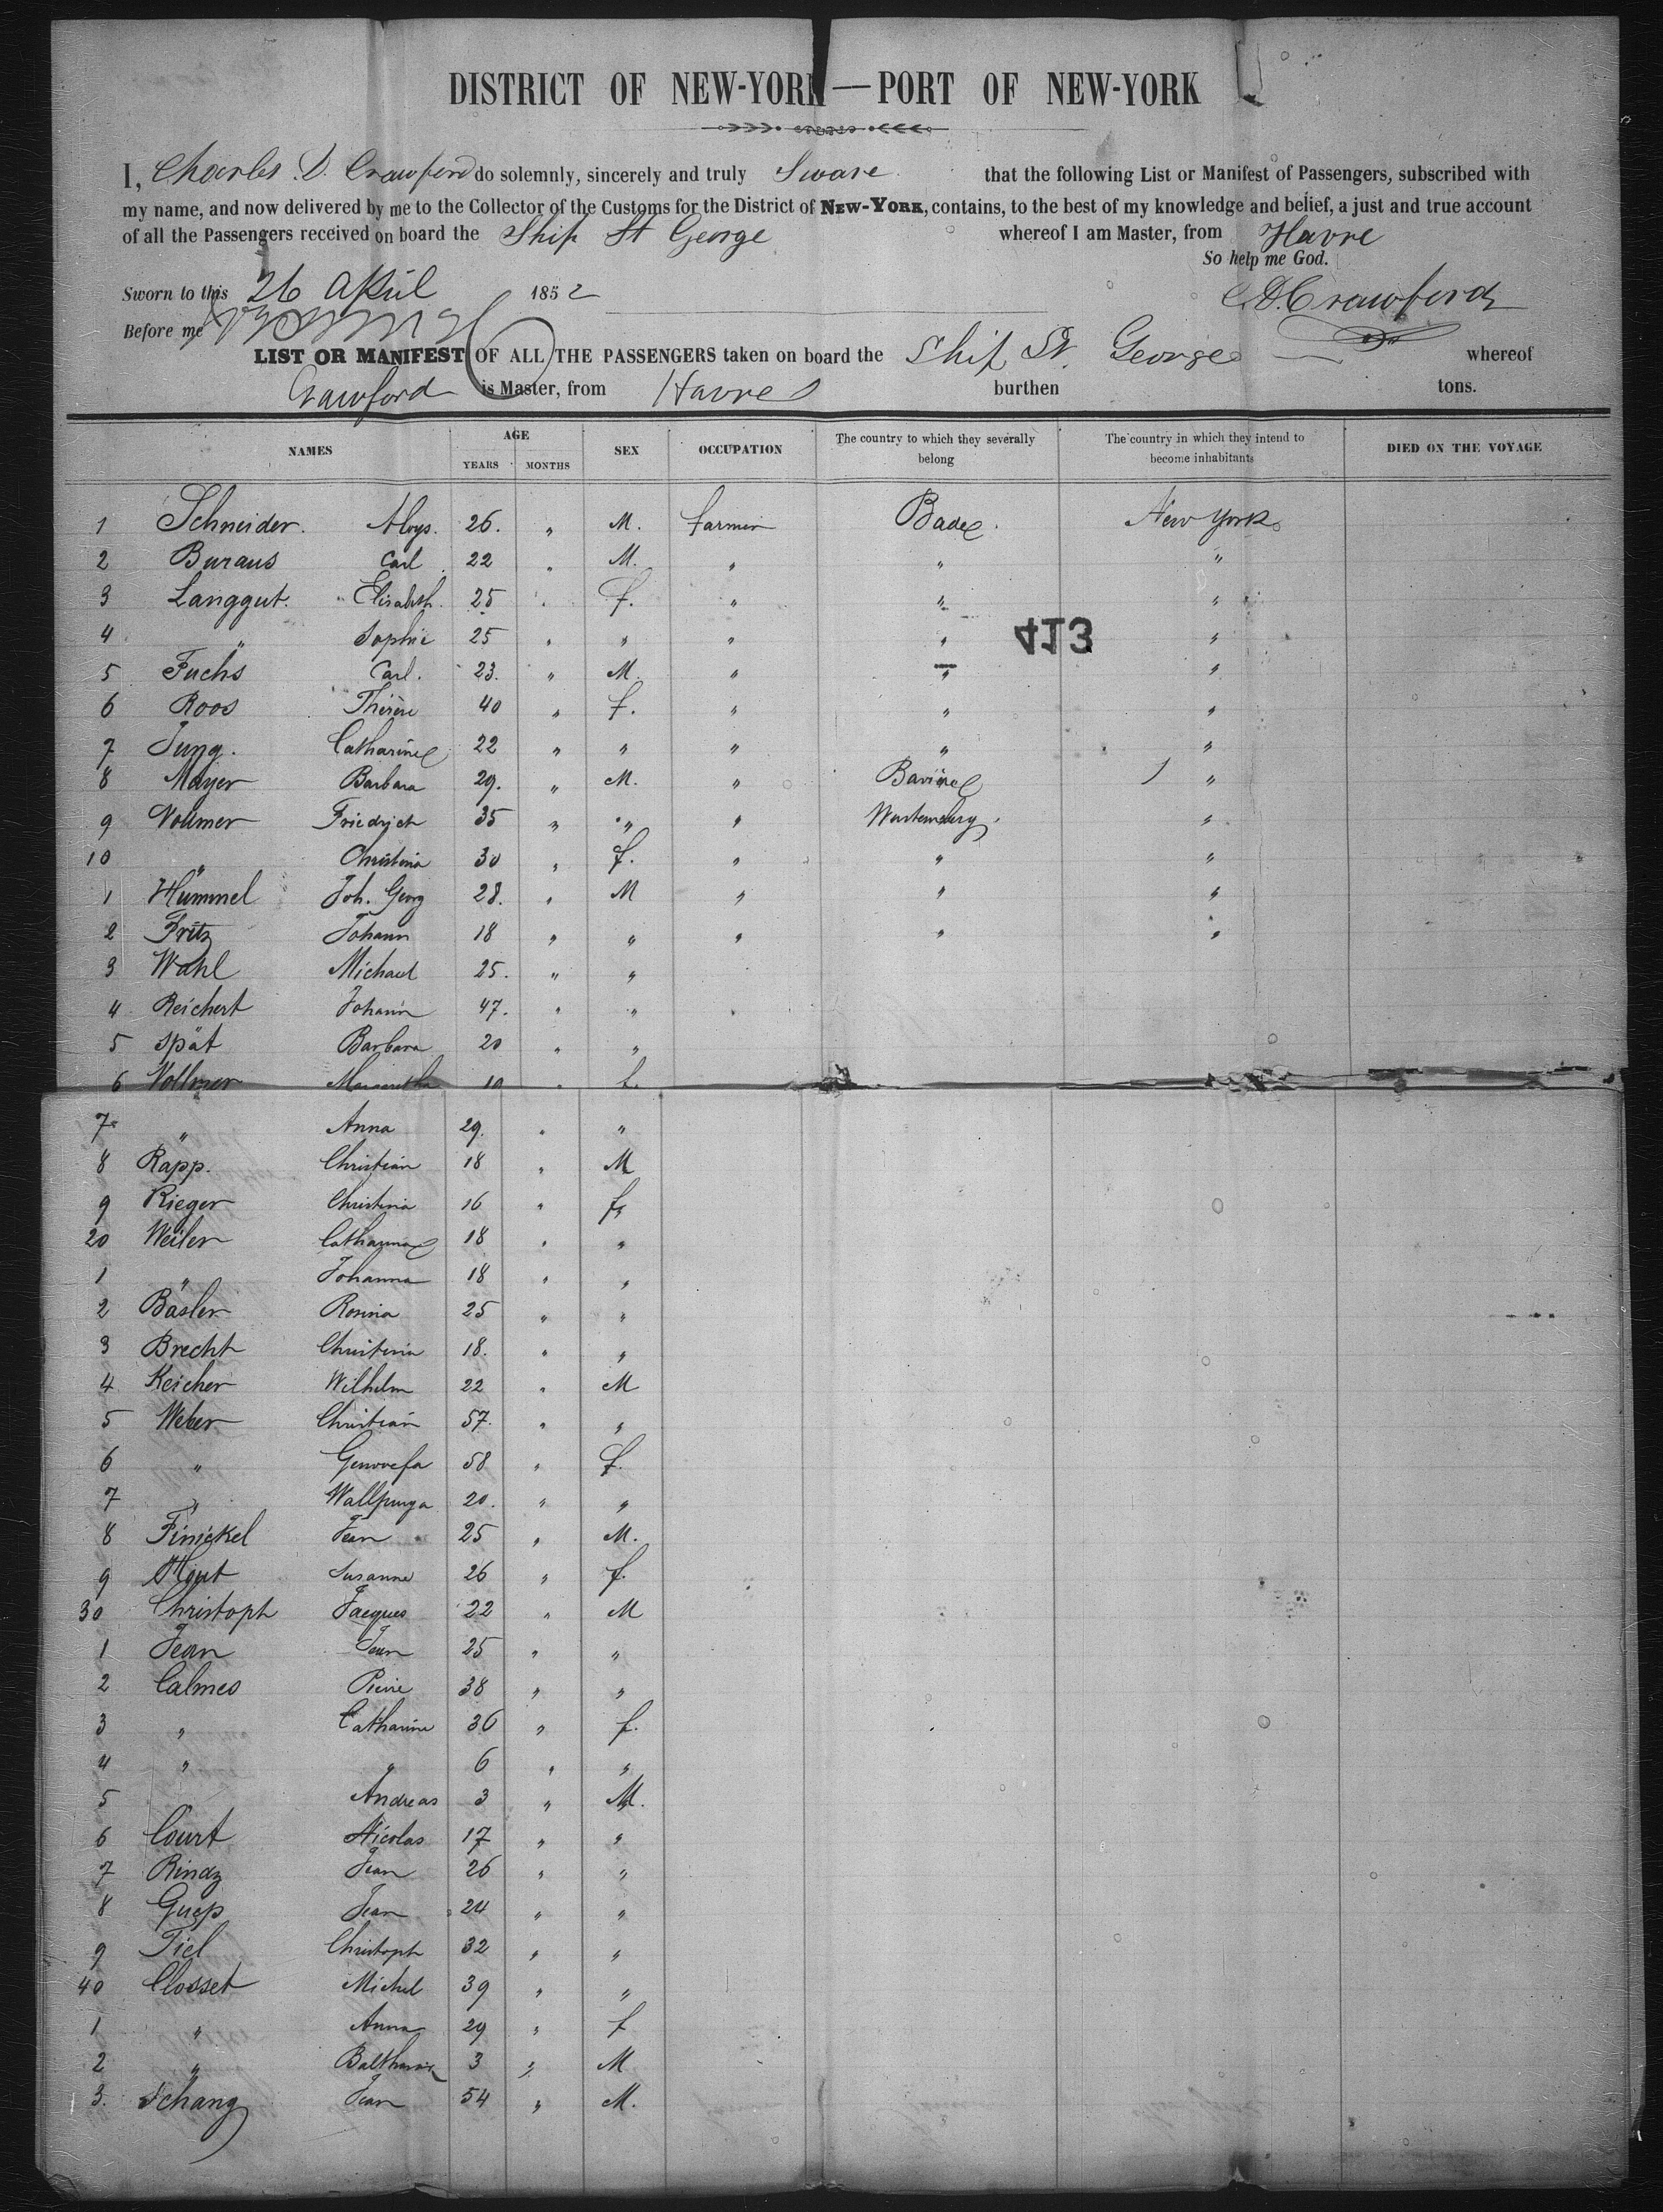 DISTRICT OF NEW-YORK—PORT OF NEW-YORK
I, Charles D. Crawford do solemnly, sincerely and truly Sware that the following List or Manifest of Passengers, subscribed with
my name, and now delivered by me to the Collector of the Customs for the District of NEW-YORK, contains, to the best of my knowledge and belief, a just and true account
of all the Passengers received on board the Ship St George whereof I am Master, from Havre
So help me God.
Sworn to this 26 April 1852 C.D. Crawford
Before me
LIST OR MANIFEST OF ALL THE PASSENGERS taken on board the Ship St. George whereof
Crawford is Master, from Havre burthen tons.
NAMES AGE YEARS MONTHS SEX OCCUPATION The country to which they severally belong The country in which they intend to become inhabitants DIED ON THE VOYAGE
1 Schneider. Aloys. 26. " M. farmer Bade. New York
2 Buraus Carl 22 " M. " " "
3 Langgut. Elisabeth. 25 " f. " " "
4 " Sophie 25 " " " " "
413
5 Fuchs Carl. 23. " M. " " "
6 Roos Thérèse 40 " f. " " "
7 Jung. Catharine 22 " " " " "
8 Mayer Barbara 29. " M. " Bavière "
9 Vollmer Friedrich 35 " " " Wurtemburg. "
10 " Christina 30 " f. " " "
1 Hummel Joh. Georg 28. " M " " "
2 Fritz Johann 18 " " " " "
3 Wahl Michael 25. " "
4 Reichert Johann 47. " "
5 Spät Barbara 20 " "
6 Vollmer Margaretha 10 " f.
7 " Anna 29. " "
8 Rapp. Christian 18 " M
9 Rieger Christina 16 " f.
20 Weiler Catharina 18 " "
1 " Johanna 18 " "
2 Basler Rosina 25 " "
3 Brecht Christina 18. " "
4 Keicher Wilhelm 22 " M
5 Weber Christian 57. " "
6 " Genovefa 58 " f.
7 " Wallpurga 20. " "
8 Finickel Jean 25 " M.
9 Susanne 26 " f.
30 Christoph Jacques 22 " M
1 Jean Jean 25 " "
2 Calmes Pierre 38 " "
3 " Catharine 36 " f.
4 " " 6 " "
5 Andreas 3 " M.
6 Court Nicolas 17 " "
7 Rindz Jean 26 " "
8 Jean 24 " "
9 Tiel Christoph 32 " "
40 Closset Michel 39 " "
1 " Anna 29 " f
2 " Balthasar 3 " M
3. Schang Jean 54 " M.